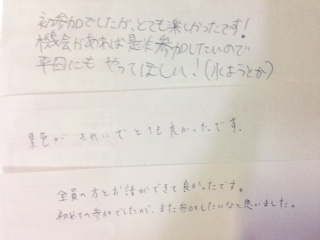 初参加でしたが、とても楽しかったです!
機会があれば是非参加したいので
平日にも やってほしい!(水ようとか)
景色が きれいで とても良かったです。
全員の方とお話ができて良かったです。
初めての参加でしたが、また参加したいなと思いました。